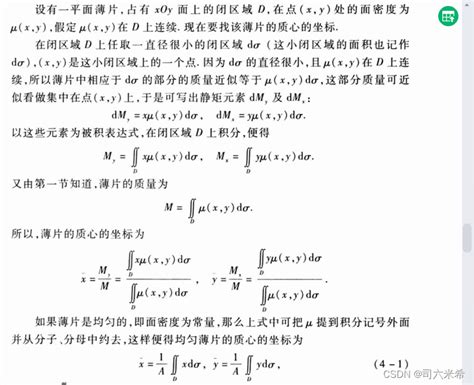 设有一平面薄片,占有 xOy 面上的闭区域 D,在点(x,y)处的面密度为
μ(x,y),假定 μ(x,y)在 D 上连续.现在要找该薄片的质心的坐标.
在闭区域 D 上任取一直径很小的闭区域 dσ(这小闭区域的面积也记作
dσ),(x,y)是这小闭区域上的一个点.因为 dσ 的直径很小,且 μ(x,y)在 D 上连
续,所以薄片中相应于 dσ 的部分的质量近似等于 μ(x,y)dσ,这部分质量可近
似看做集中在点(x,y)上,于是可写出静矩元素 dM_y 及 dM_x:
dM_y = xμ(x,y)dσ, dM_x = yμ(x,y)dσ.
以这些元素为被积表达式,在闭区域 D 上积分,便得
M_y = ∬_D xμ(x,y)dσ, M_x = ∬_D yμ(x,y)dσ.
又由第一节知道,薄片的质量为
M = ∬_D μ(x,y)dσ.
所以,薄片的质心的坐标为
x̄ = M_y/M = ∬_D xμ(x,y)dσ / ∬_D μ(x,y)dσ, ȳ = M_x/M = ∬_D yμ(x,y)dσ / ∬_D μ(x,y)dσ.
如果薄片是均匀的,即面密度为常量,那么上式中可把 μ 提到积分记号外面
并从分子、分母中约去,这样便得均匀薄片的质心的坐标为
x̄ = 1/A ∬_D xdσ, ȳ = 1/A ∬_D ydσ, (4-1)
CSDN @司六米希